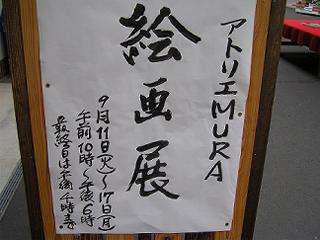 アトリエMURA
絵画展
9月11日(火)～17日(月)
午前10時～午後6時
最終日は午後4時まで